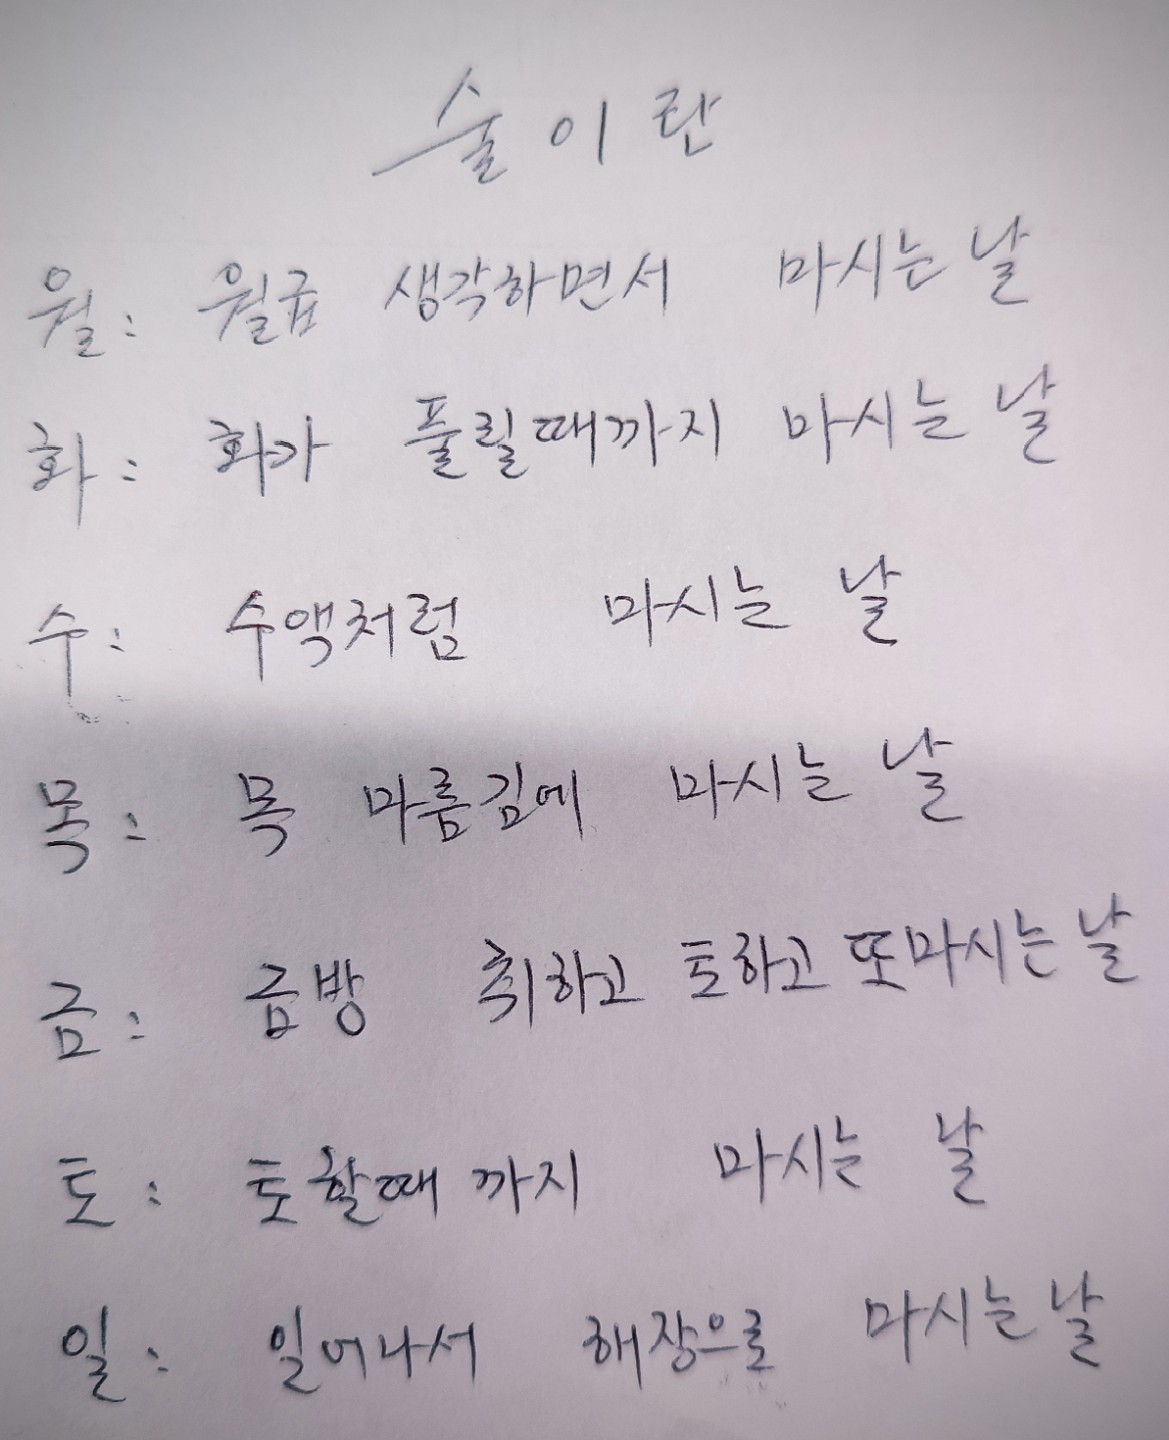 술이란
월: 월급 생각하면서 마시는 날
화: 화가 풀릴때까지 마시는 날
수: 수액처럼 마시는 날
목: 목 마름김에 마시는 날
금: 금방 취하고 토하고 또마시는 날
토: 토할때 까지 마시는 날
일: 일어나서 해장으로 마시는 날